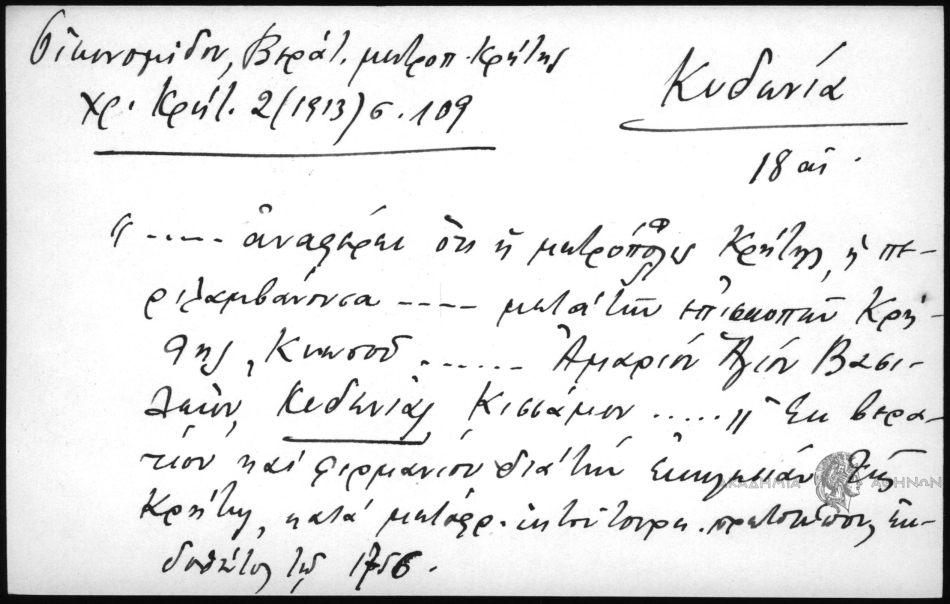 Οἰκονομίδου, Βεράτ. μητροπ. Κρήτης
Χρ. Κρήτ. 2 (1913) σ. 109
Κυδωνία
18 αἰ.
"..... ἀναφέρει ὅτι ἡ μητρόπολις Κρήτης, ἡ πε-
ριλαμβάνουσα ---- μετὰ τῶν ἐπισκοπῶν Κρή-
της, Κνωσοῦ ...... Ἀμαρίου Ἁγίου Βασι-
λείου, Κυδωνίας, Κισσάμου ....." Ἐκ βερα-
τίου καὶ φιρμανίου διὰ τὴν ἐκκλησίαν τῆς
Κρήτης, κατὰ μετάφρ. ἐκ τοῦ τουρκ. πρωτοτύπου, ἐκ-
δοθέντος τῷ 1756.
ΑΚΑΔΗΜΙΑ ΑΘΗΝΩΝ